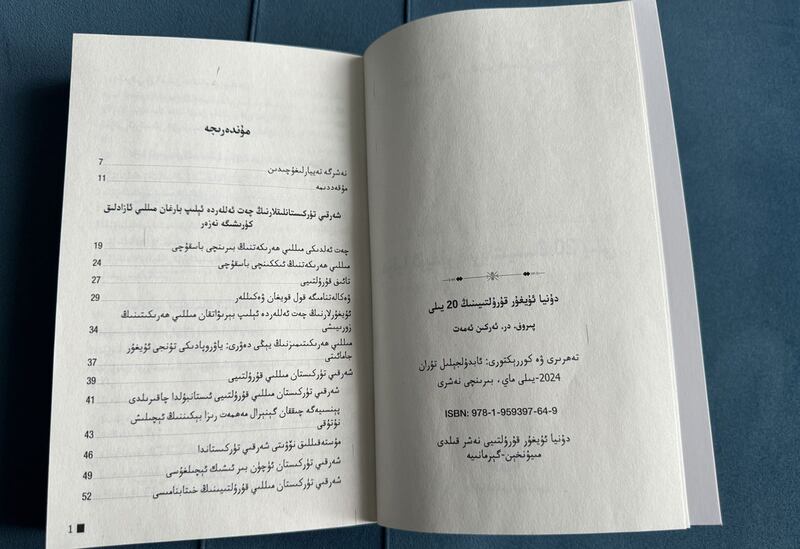 دۇنيا ئۇيغۇر قۇرۇلتىيىنىڭ 20 يىلى
پىروف. در. ئەركىن ئەمەت
تەھرىرى ۋە كوررېكتورى: ئابدۇلجېلىل تۇران
2024-يىلى ماي، بىرىنچى نەشرى
ISBN: 978-1-959397-64-9
دۇنيا ئۇيغۇر قۇرۇلتىيى نەشر قىلدى
ميۇنخېن-گېرمانىيە
مۇندەرىجە
نەشرگە تەييارلىغۇچىدىن 7
مۇقەددىمە 11
شەرقىي تۈركىستانلىقلارنىڭ چەت ئەللەردە ئېلىپ بارغان مىللىي ئازادلىق
كۈرىشىگە نەزەر
چەت ئەلدىكى مىللىي ھەرىكەتنىڭ بىرىنچى باسقۇچى 19
مىللىي ھەرىكەتنىڭ ئىككىنچى باسقۇچى 24
تائىق قۇرۇلتىيى 27
ۋەكالەتنامىگە قول قويغان ۋەكىللەر 29
ئۇيغۇرلارنىڭ چەت ئەللەردە ئېلىپ بېرىۋاتقان مىللىي ھەرىكىتىنىڭ
زورىيىشى 34
مىللىي ھەرىكىتىمىزنىڭ يېڭى دەۋرى: ياۋروپادىكى تۇنجى ئۇيغۇر
جامائىتى 37
شەرقىي تۈركىستان مىللىي قۇرۇلتىيى 39
شەرقىي تۈركىستان مىللىي قۇرۇلتىيى ئىستانبۇلدا چاقىرىلدى 41
پېنسىيەگە چىققان گېنېرال مەھمەت رىزا بېكىننىڭ ئېچىلىش
نۇتۇقى 43
مۇستەقىللىق نۆۋىتى شەرقىي تۈركىستاندا 46
شەرقىي تۈركىستان ئۈچۈن بىر ئىشىك ئېچىلغۇسى 49
شەرقىي تۈركىستان مىللىي قۇرۇلتىيىنىڭ خىتابنامىسى 52
1